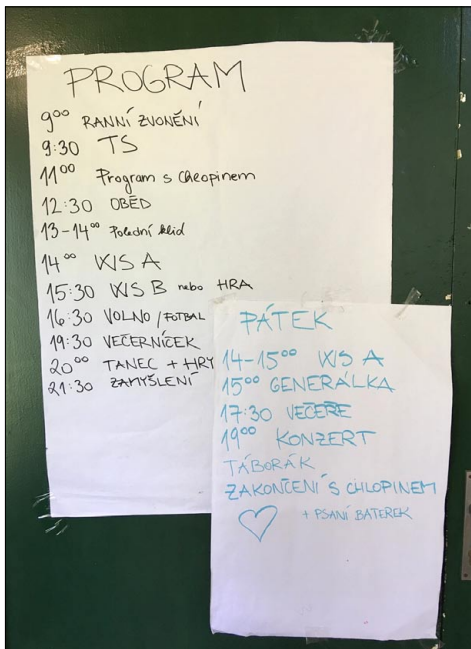 PROGRAM
9⁰⁰ RANNÍ ZVONĚNÍ
9:30 TS
11⁰⁰ Program s Chlopinem
12:30 OBĚD
13-14⁰⁰ Polední klid
14⁰⁰ WS A
15:30 WS B nebo HRA
16:30 VOLNO / FOTBAL
19:30 VEČERNÍČEK
20⁰⁰ TANEC + HRY
21:30 ZAMYŠLENÍ
PÁTEK
14-15⁰⁰ WS A
15⁰⁰ GENERÁLKA
17:30 VEČEŘE
19⁰⁰ KONZERT
TÁBORÁK
ZAKONČENÍ S CHLOPINEM
+ PSANÍ BATEREK